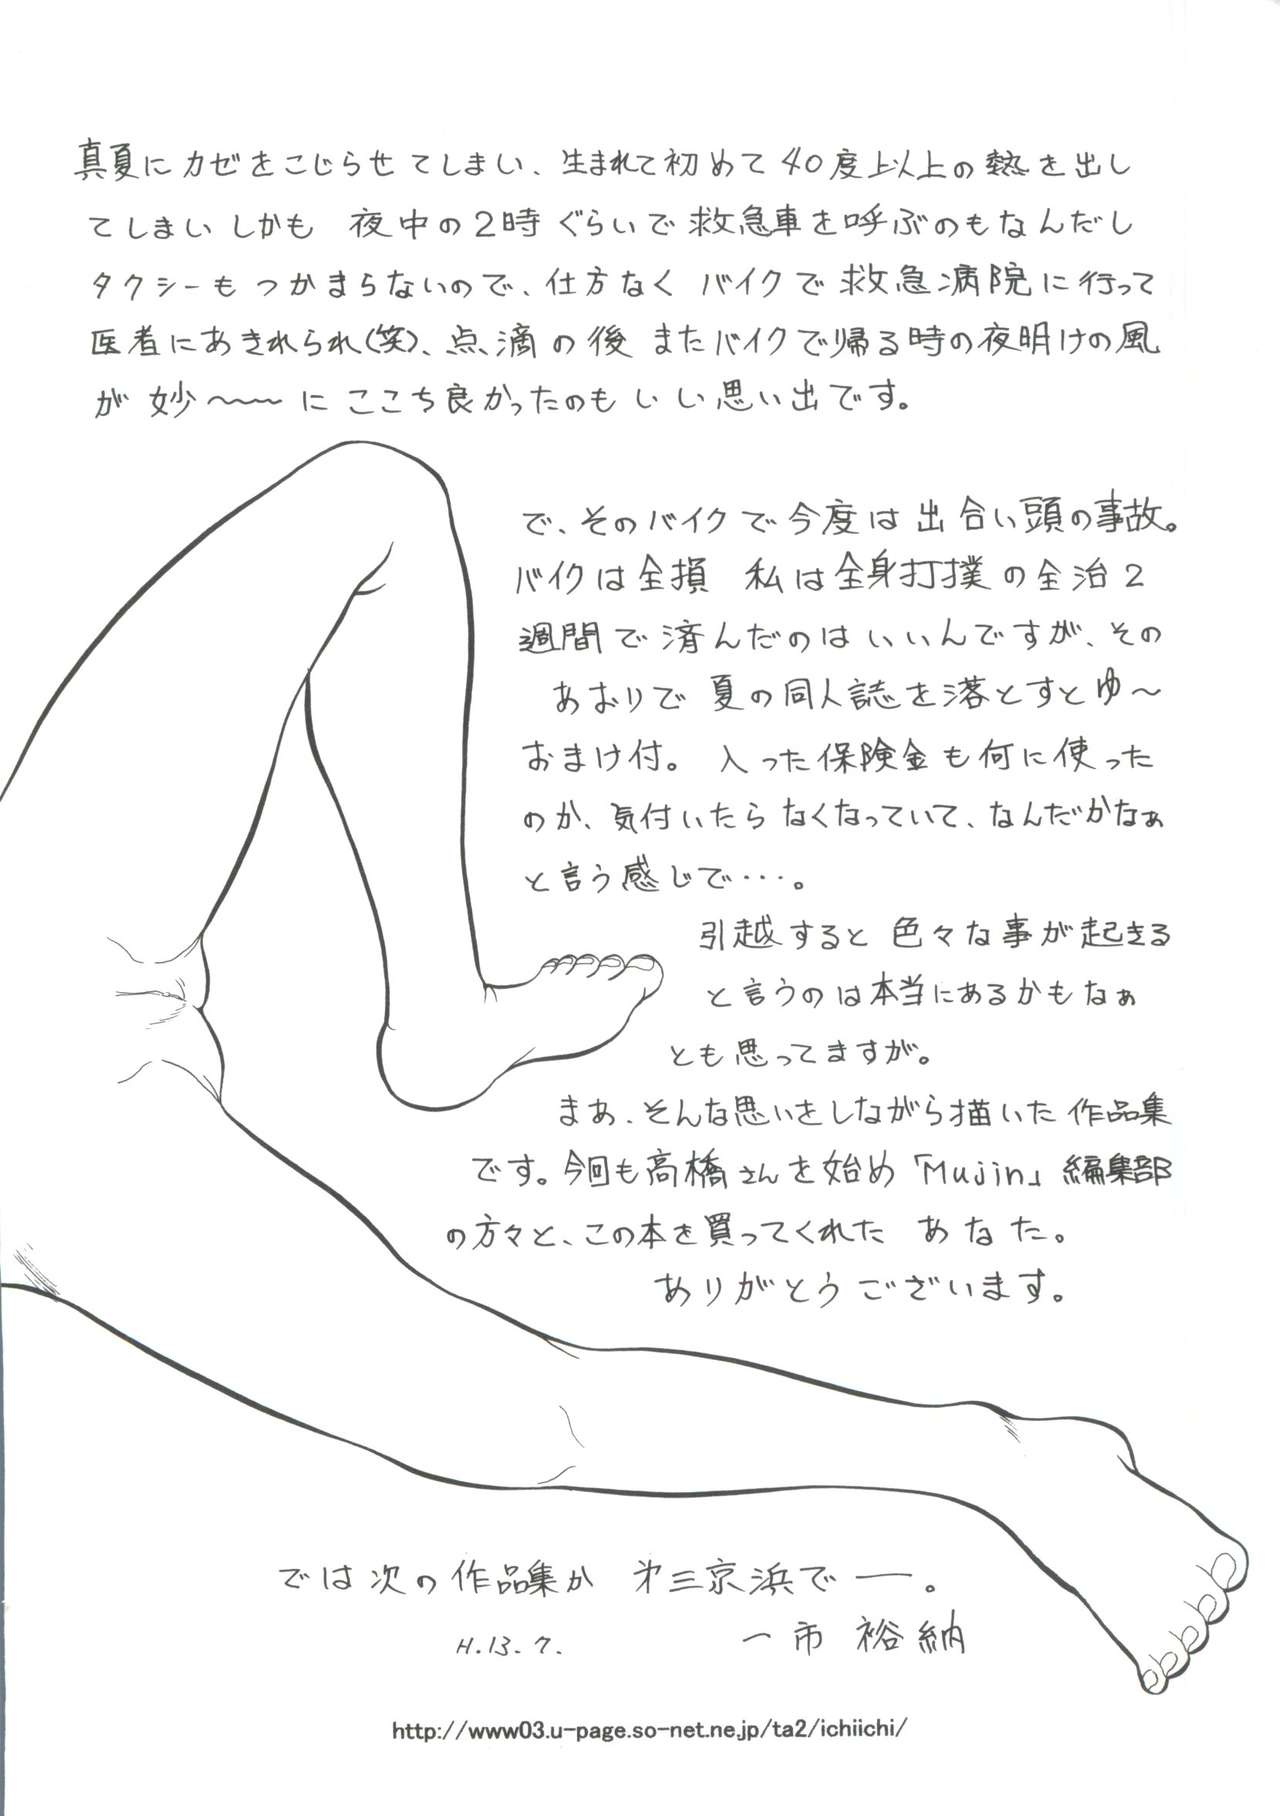 真夏にカゼをこじらせてしまい、生まれて初めて40度上以上の熱を出し
てしまいしかも 夜中の2時ぐらいで救急車を呼ぶのもなんだし
タクシーもつかまらないので、仕方なく バイクで救急病院に行って
医者にあきれられ(笑)、点滴の後 またバイクで帰る時の夜明けの風
が 妙〜〜〜に ここち良かったのも いい思い出です。
で、そのバイクで今度は出合い頭の事故。
バイクは全損 私は全身打撲の全治2
週間で済んだのはいいんですが、その
あおりで 夏の同人誌を落とすとゆ〜
おまけ付。 入った保険金も何に使った
のか、気付いたら なくなっていて、なんだかなぁ
と言う感じで・・・。
引越すると 色々な事が起きる
と言うのは本当にあるかもなぁ
とも思ってますが。
まあ、そんな思いをしながら描いた 作品集
です。今回も高橋さんを始め「Mujin」編集部
の方々と、この本を買ってくれた あなた。
ありがとうございます。
では次の作品集か 第三京浜でー。
H.13.7. 一市 裕納
http://www03.u-page.so-net.ne.jp/ta2/ichiichi/